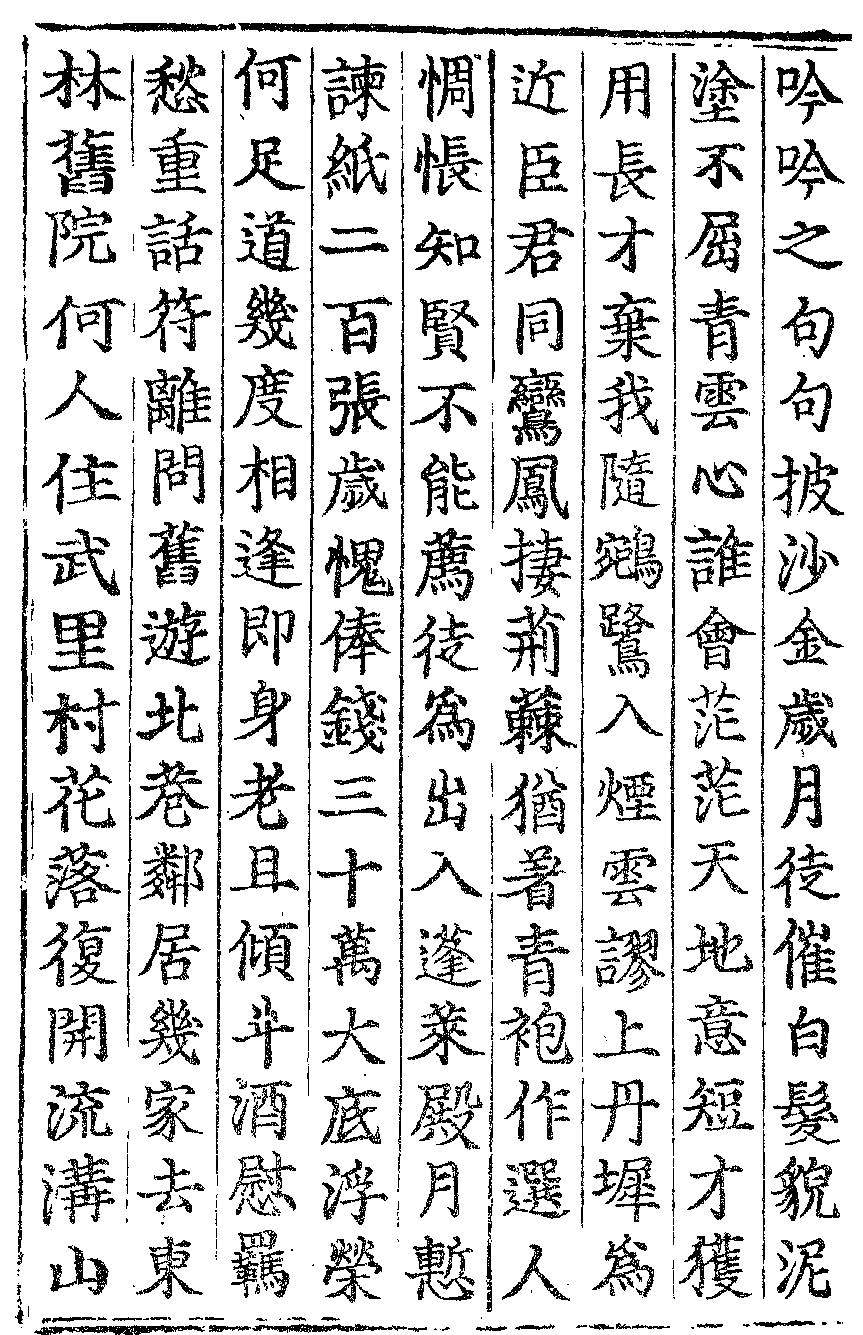 吟吟之句句披沙金歲月徒催白髮貌泥
塗不屈青雲心誰會茫茫天地意短才獲
用長才棄我隨鵷鷺入煙雲謬上丹墀為
近臣君同鸞鳳捿荊蕀猶著青袍作選人
惆悵知賢不能薦徒為出入蓬萊殿月慙
諫紙二百張歲愧俸錢三十萬大底浮榮
何足道幾度相逢即身老且傾斗酒慰羈
愁重話符離問舊遊北巷鄰居幾家去東
林舊院何人住武里村花落復開流溝山